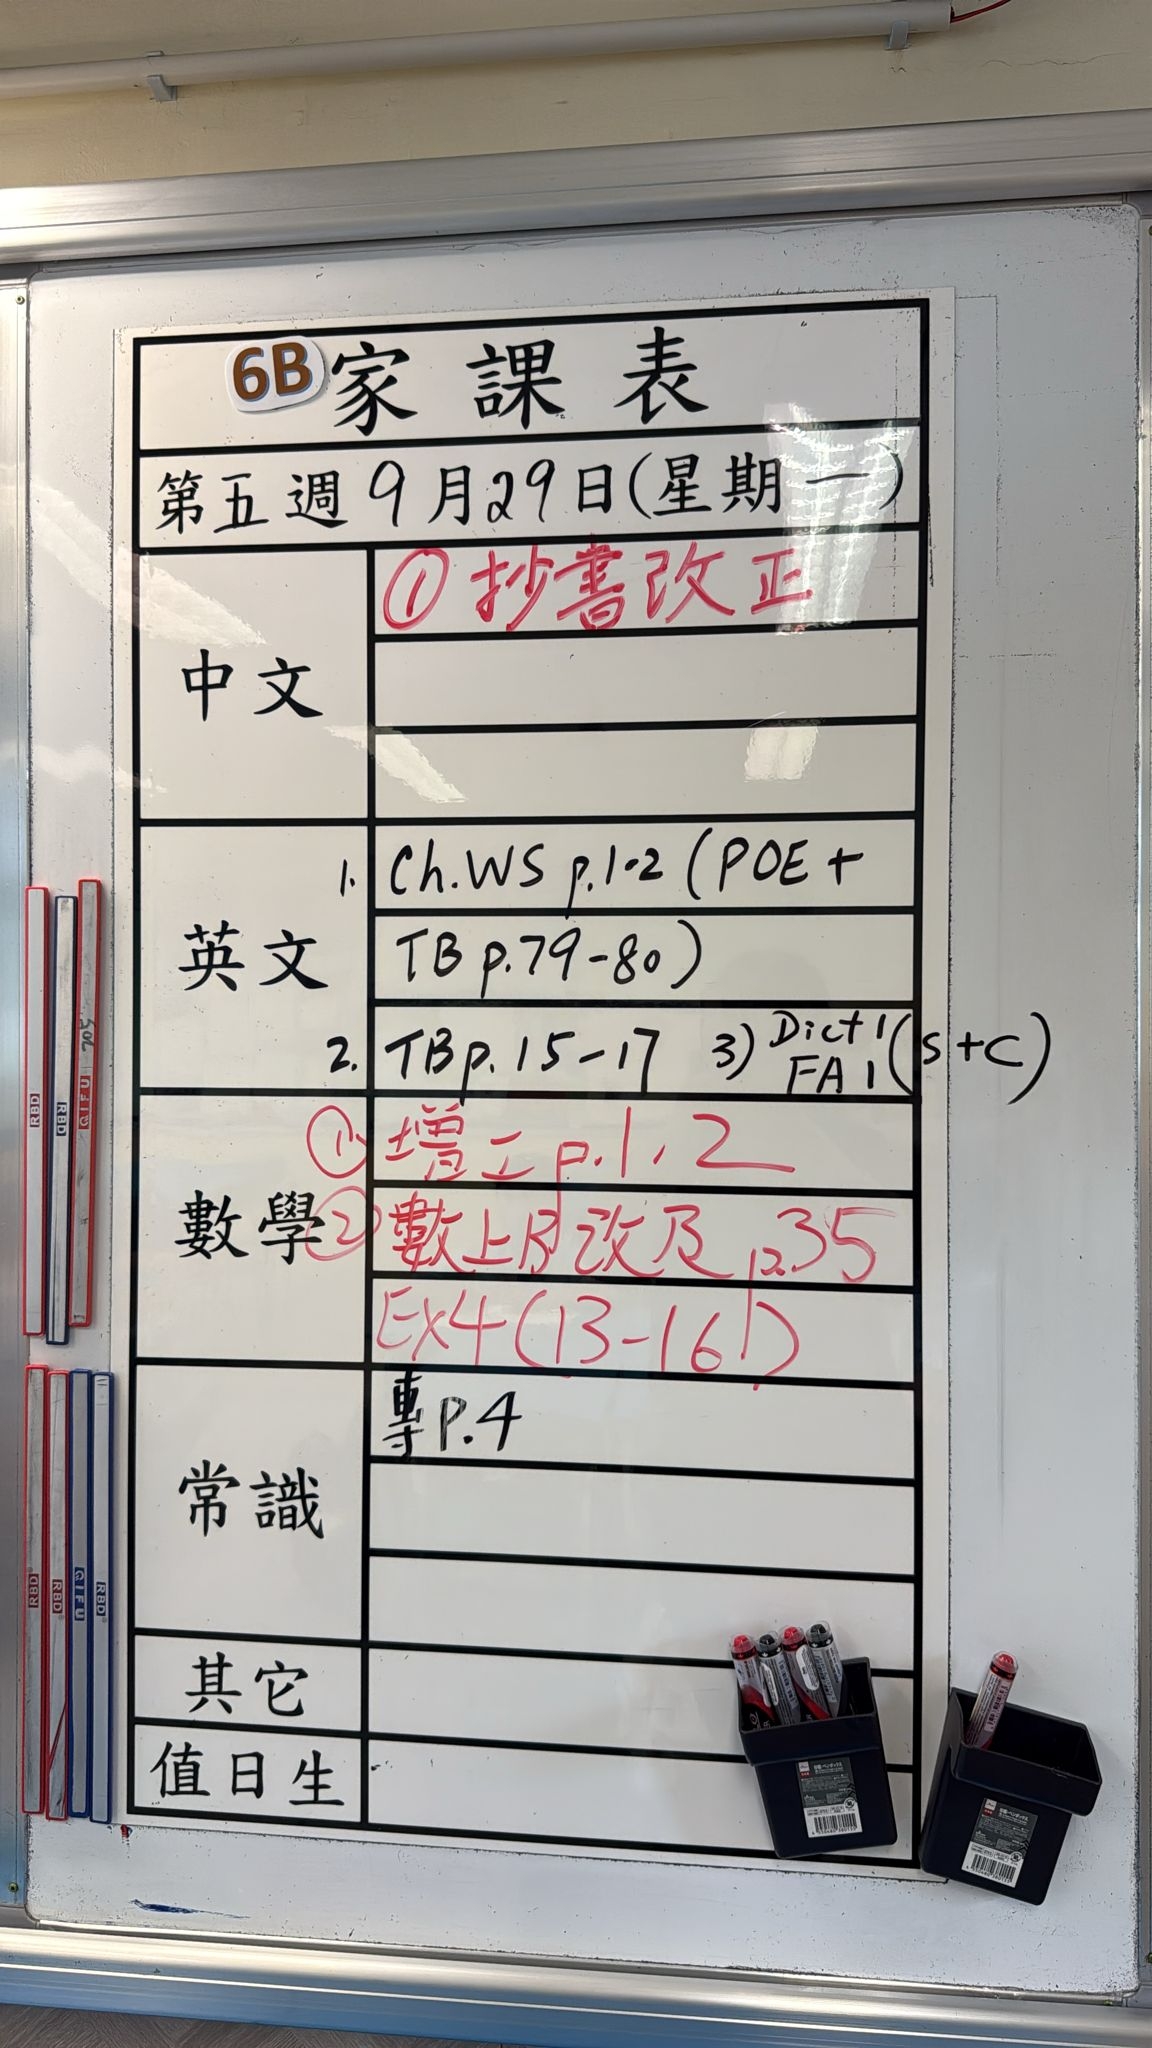 6B 家課表
第五週 9月29日(星期一)
中文
① 抄書改正
英文
1. Ch.WS p.1-2 (POE +
TB p.79-80)
2. TB p.15-17 3) Dict 1 FA 1 (S+C)
數學
① 增工 p.1, 2
② 數上B改及 p.35
Ex4 (13-16)
常識
專 P.4
其它
值日生
RBD
RBD
QIFU
RBD
RBD
QIFU
RBD